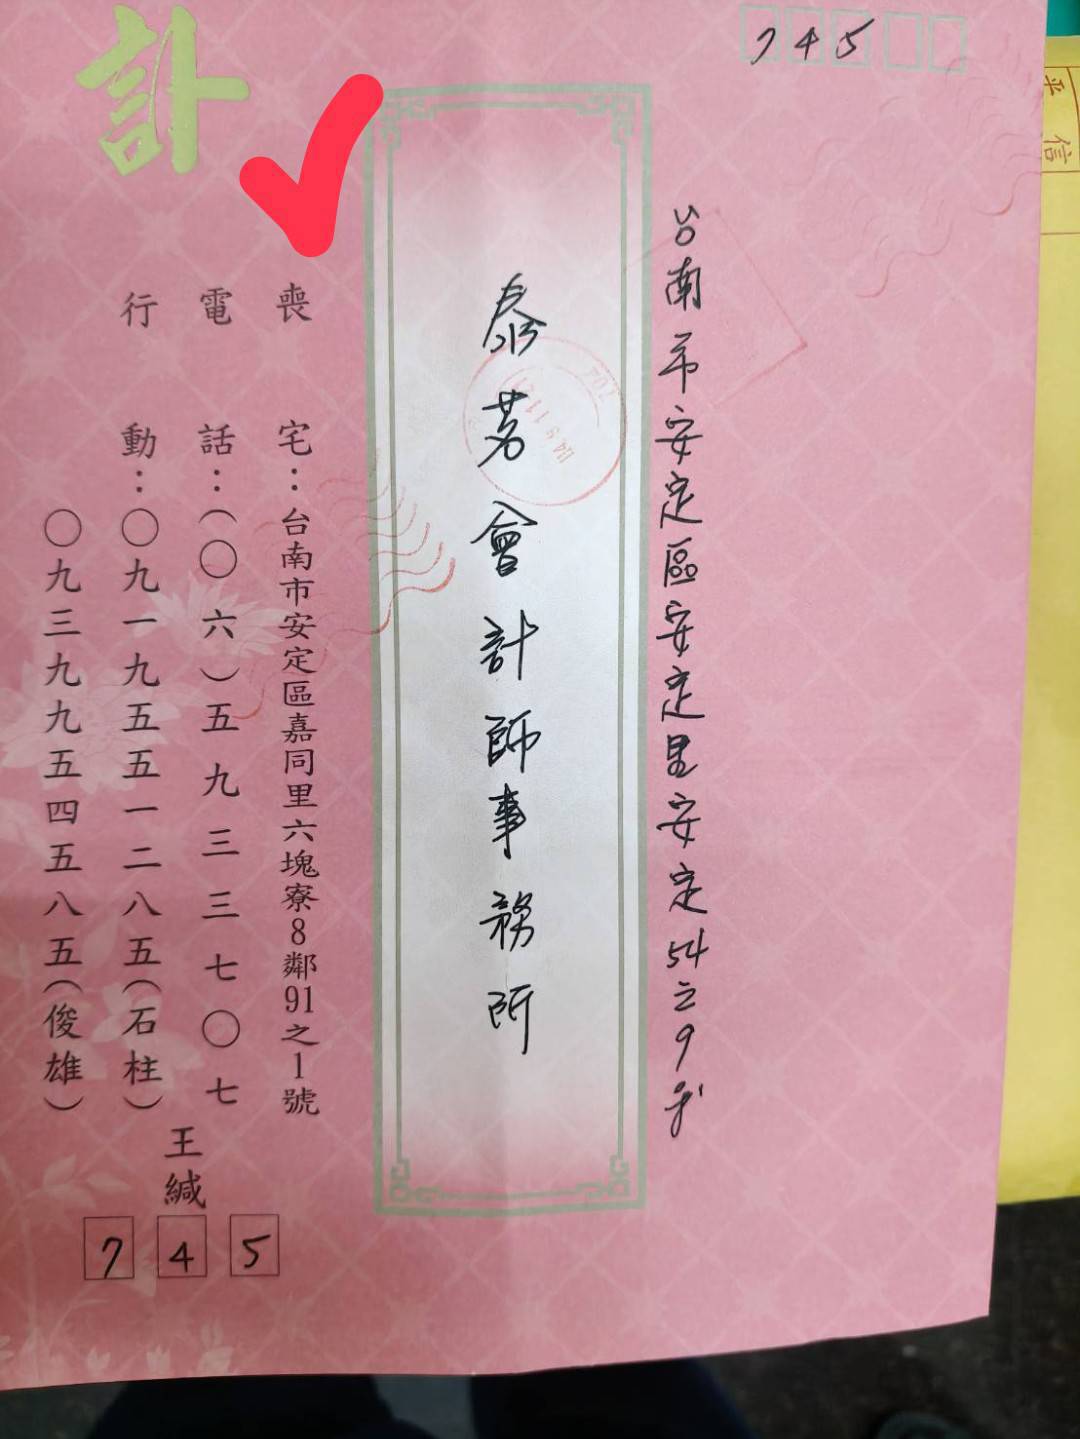 745
台南市安定區安定里安定54之9号
泰茗會計師事務所
訃
喪宅：台南市安定區嘉同里六塊寮8鄰91之1號
電話：（〇六）五九三三七〇七
行動：〇九一九五五一二八五（石柱）
〇九三九九五四五八五（俊雄）
王緘
745
平信